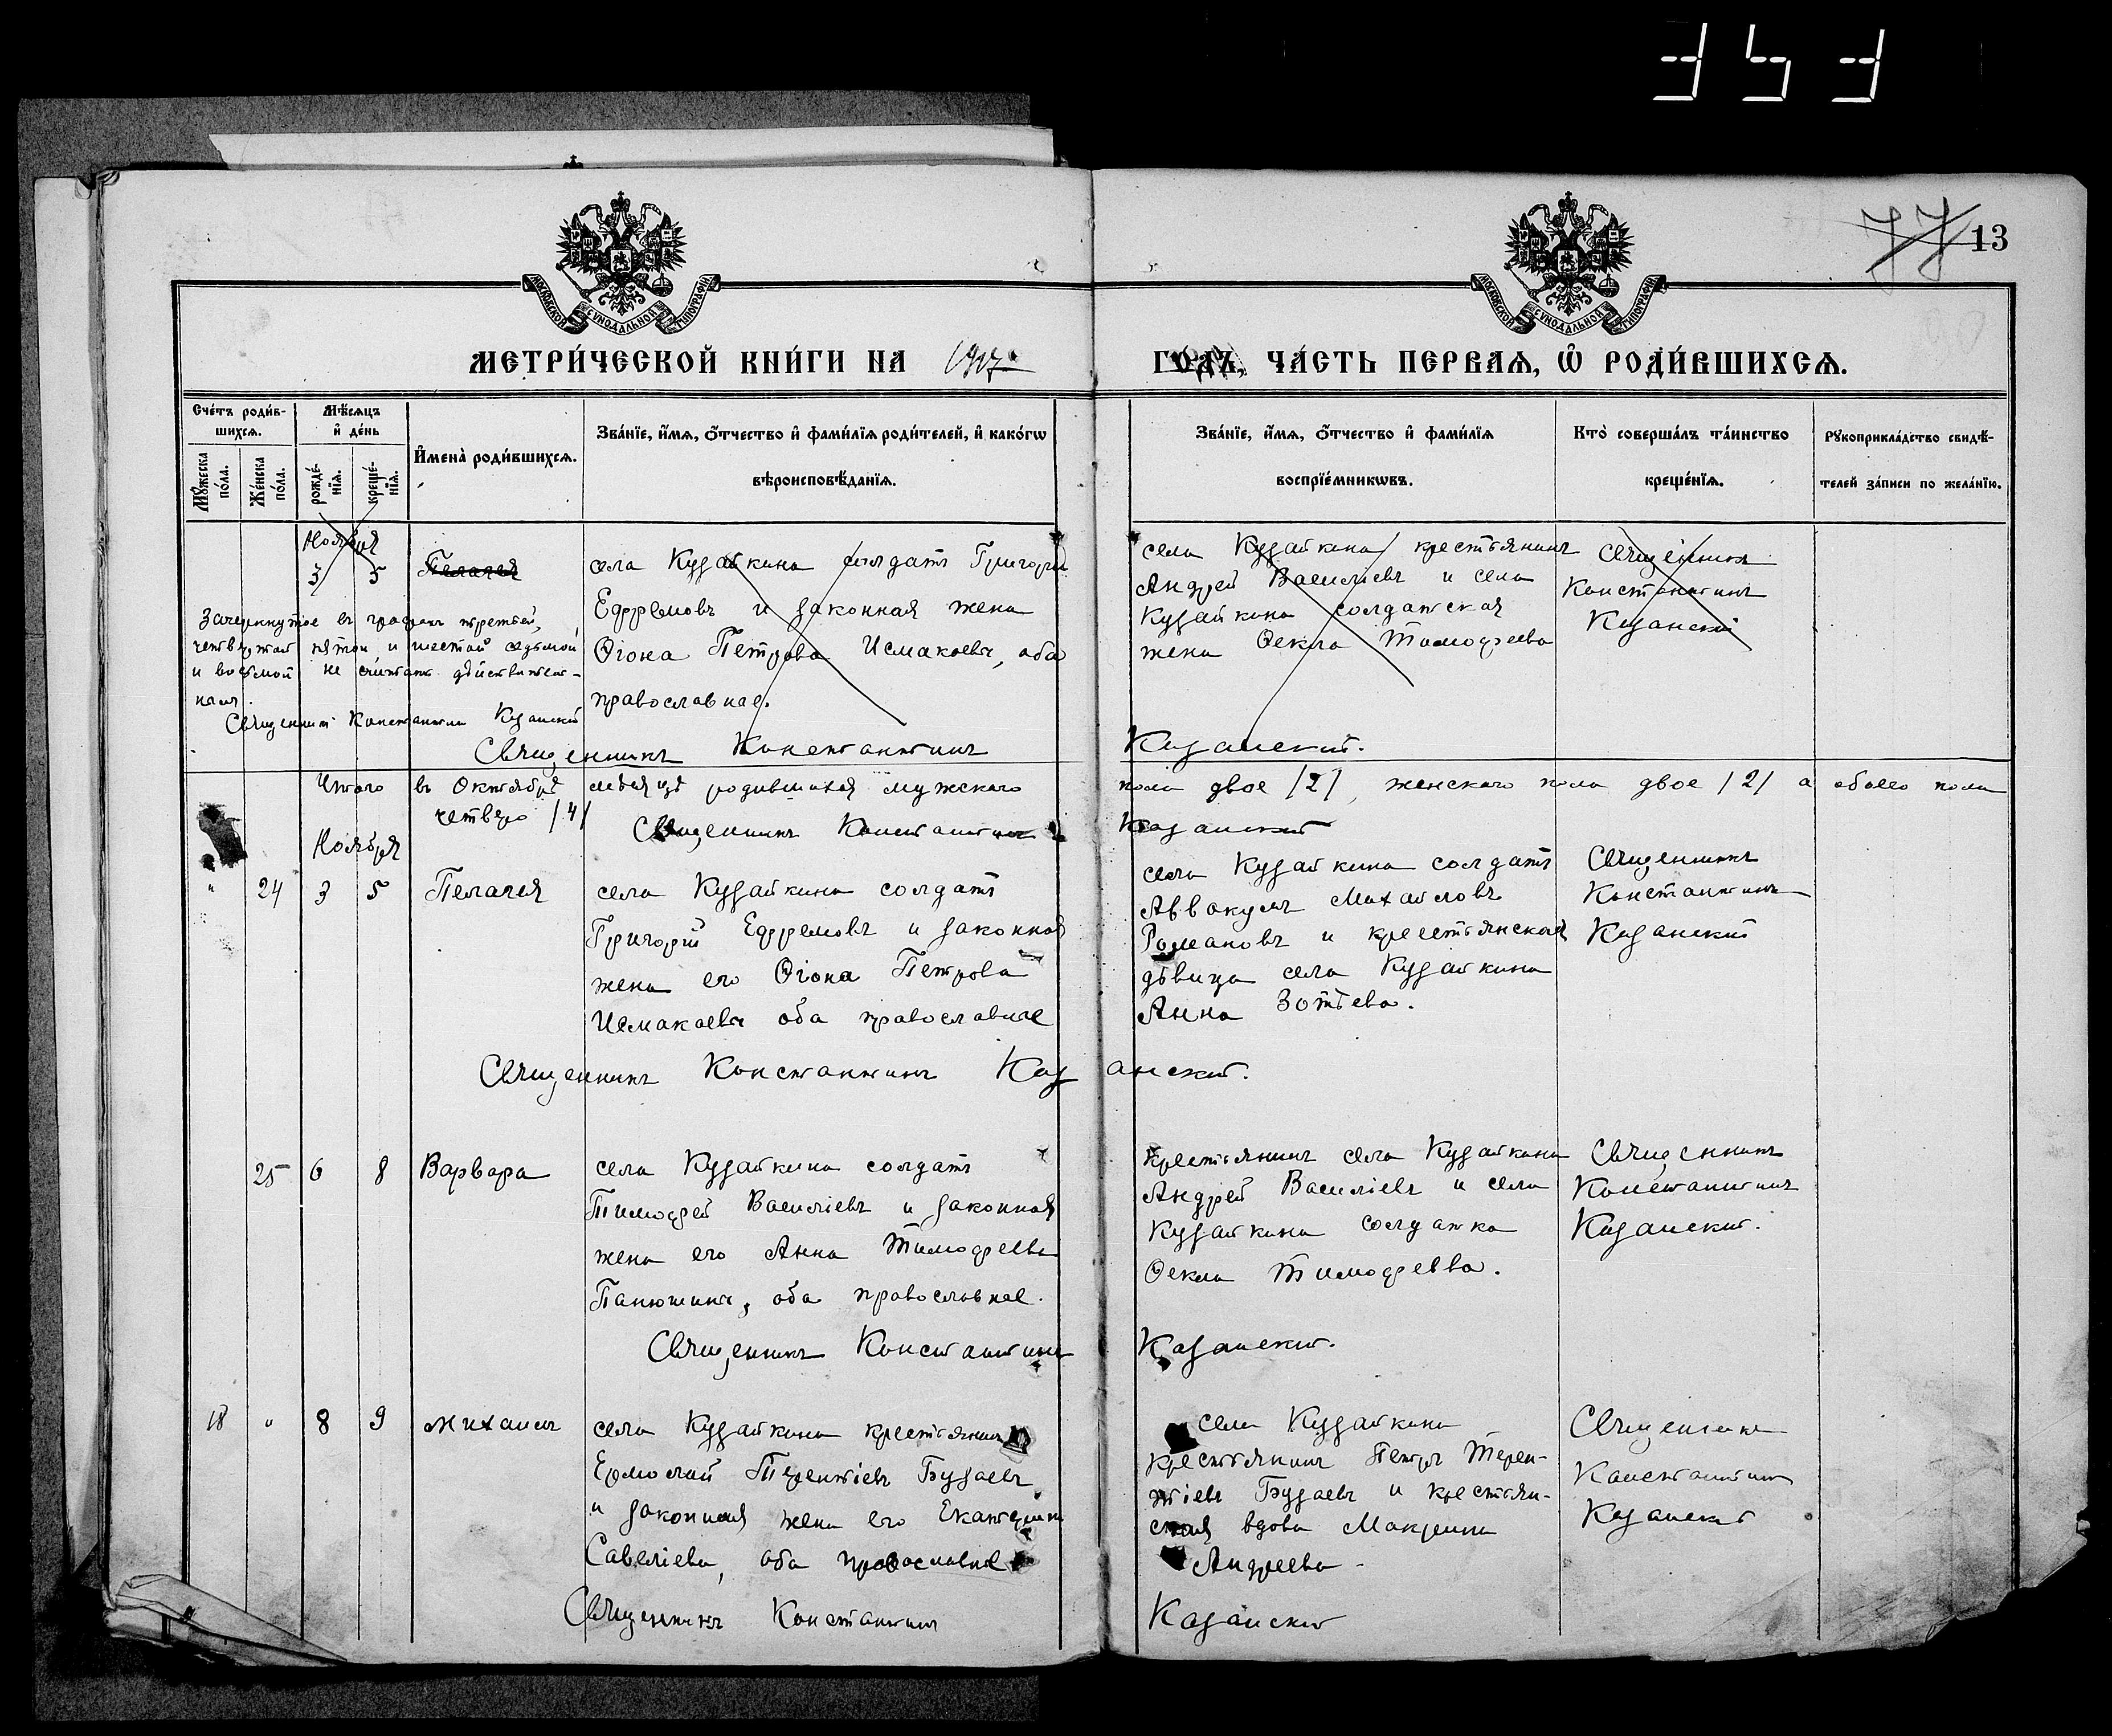 353
77
13
МОСКОВСКОЙ СѴНОДАЛЬНОЙ ТИПОГРАФІИ
МОСКОВСКОЙ СѴНОДАЛЬНОЙ ТИПОГРАФІИ
МЕТРИ́ЧЕСКОЙ КНИ́ГИ НА 1917 ГОДЪ, ЧА́СТЬ ПЕРВАѦ, Ѽ РОДИ́ВШИХСѦ.
Сче́тъ роди́в-
шихсѧ.
Мꙋ́жеска по́ла.
Же́нска по́ла.
Мѣ́сѧцъ
и҆ де́нь
рожде́-нїѧ.
креще́-нїѧ.
И҆мена̀ роди́вшихсѧ.
Зва́нїе, и҆́мѧ, ѻ҆́тчество и҆ фами́лїѧ роди́телей, и҆ како́гѡ
вѣроисповѣ́данїѧ.
Зва́нїе, и҆́мѧ, ѻ҆́тчество и҆ фами́лїѧ
воспрїе́мникѡвъ.
Кто̀ соверша́лъ та́инство
креще́нїѧ.
Рꙋкоприкла́дство свидѣ́-
телей за́писи по жела́нїю.
Ноября
3 5 Пелагея
села Кузайкина солдатъ Григорій
Ефремовъ и законная жена
Ѳіона Петрова Исмакаевы, оба
православные.
села Кузайкина крестьянинъ
Андрей Васильевъ и села
Кузайкина солдатская
жена Ѳекла Тимофеева
Священникъ
Константинъ
Казанскій
Зачеркнутое въ графахъ третьей,
четвертой пятой и шестой седьмой
и восьмой не считать действитель-
нымъ.
Священникъ Константинъ Казанскій
Священникъ Константинъ Казанскій.
Итого въ Октябрѣ мѣсяцѣ родившихся мужского пола двое /2/, женскаго пола двое /2/ а обоего пола
четверо /4/ Священникъ Константинъ Казанскій
Ноября
" 24 3 5 Пелагея
села Кузайкина солдатъ
Григорій Ефремовъ и законная
жена его Ѳіона Петрова
Исмакаевы оба православные
села Кузайкина солдатъ
Аввакумъ Михайловъ
Романовъ и крестьянская
дѣвица села Кузайкина
Анна Зотѣева.
Священникъ
Константинъ
Казанскій
Священникъ Константинъ Казанскій.
25 6 8 Варвара
села Кузайкина солдатъ
Тимофей Васильевъ и законная
жена его Анна Тимофеева
Панюшины, оба православные.
крестьянинъ села Кузайкина
Андрей Васильевъ и села
Кузайкина солдатка
Ѳекла Тимофеева.
Священникъ
Константинъ
Казанскій.
Священникъ Константинъ Казанскій.
18 " 8 9 Михаилъ
села Кузайкина крестьянинъ
Ермолай Терентіевъ Бузаевъ
и законная жена его Екатерина
Савеліева, оба православные
села Кузайкина
крестьянинъ Петръ Терен-
тіевъ Бузаевъ и крестьян-
ская вдова Макрина
Андреева
Священникъ
Константинъ
Казанскій
Священникъ Константинъ Казанскій